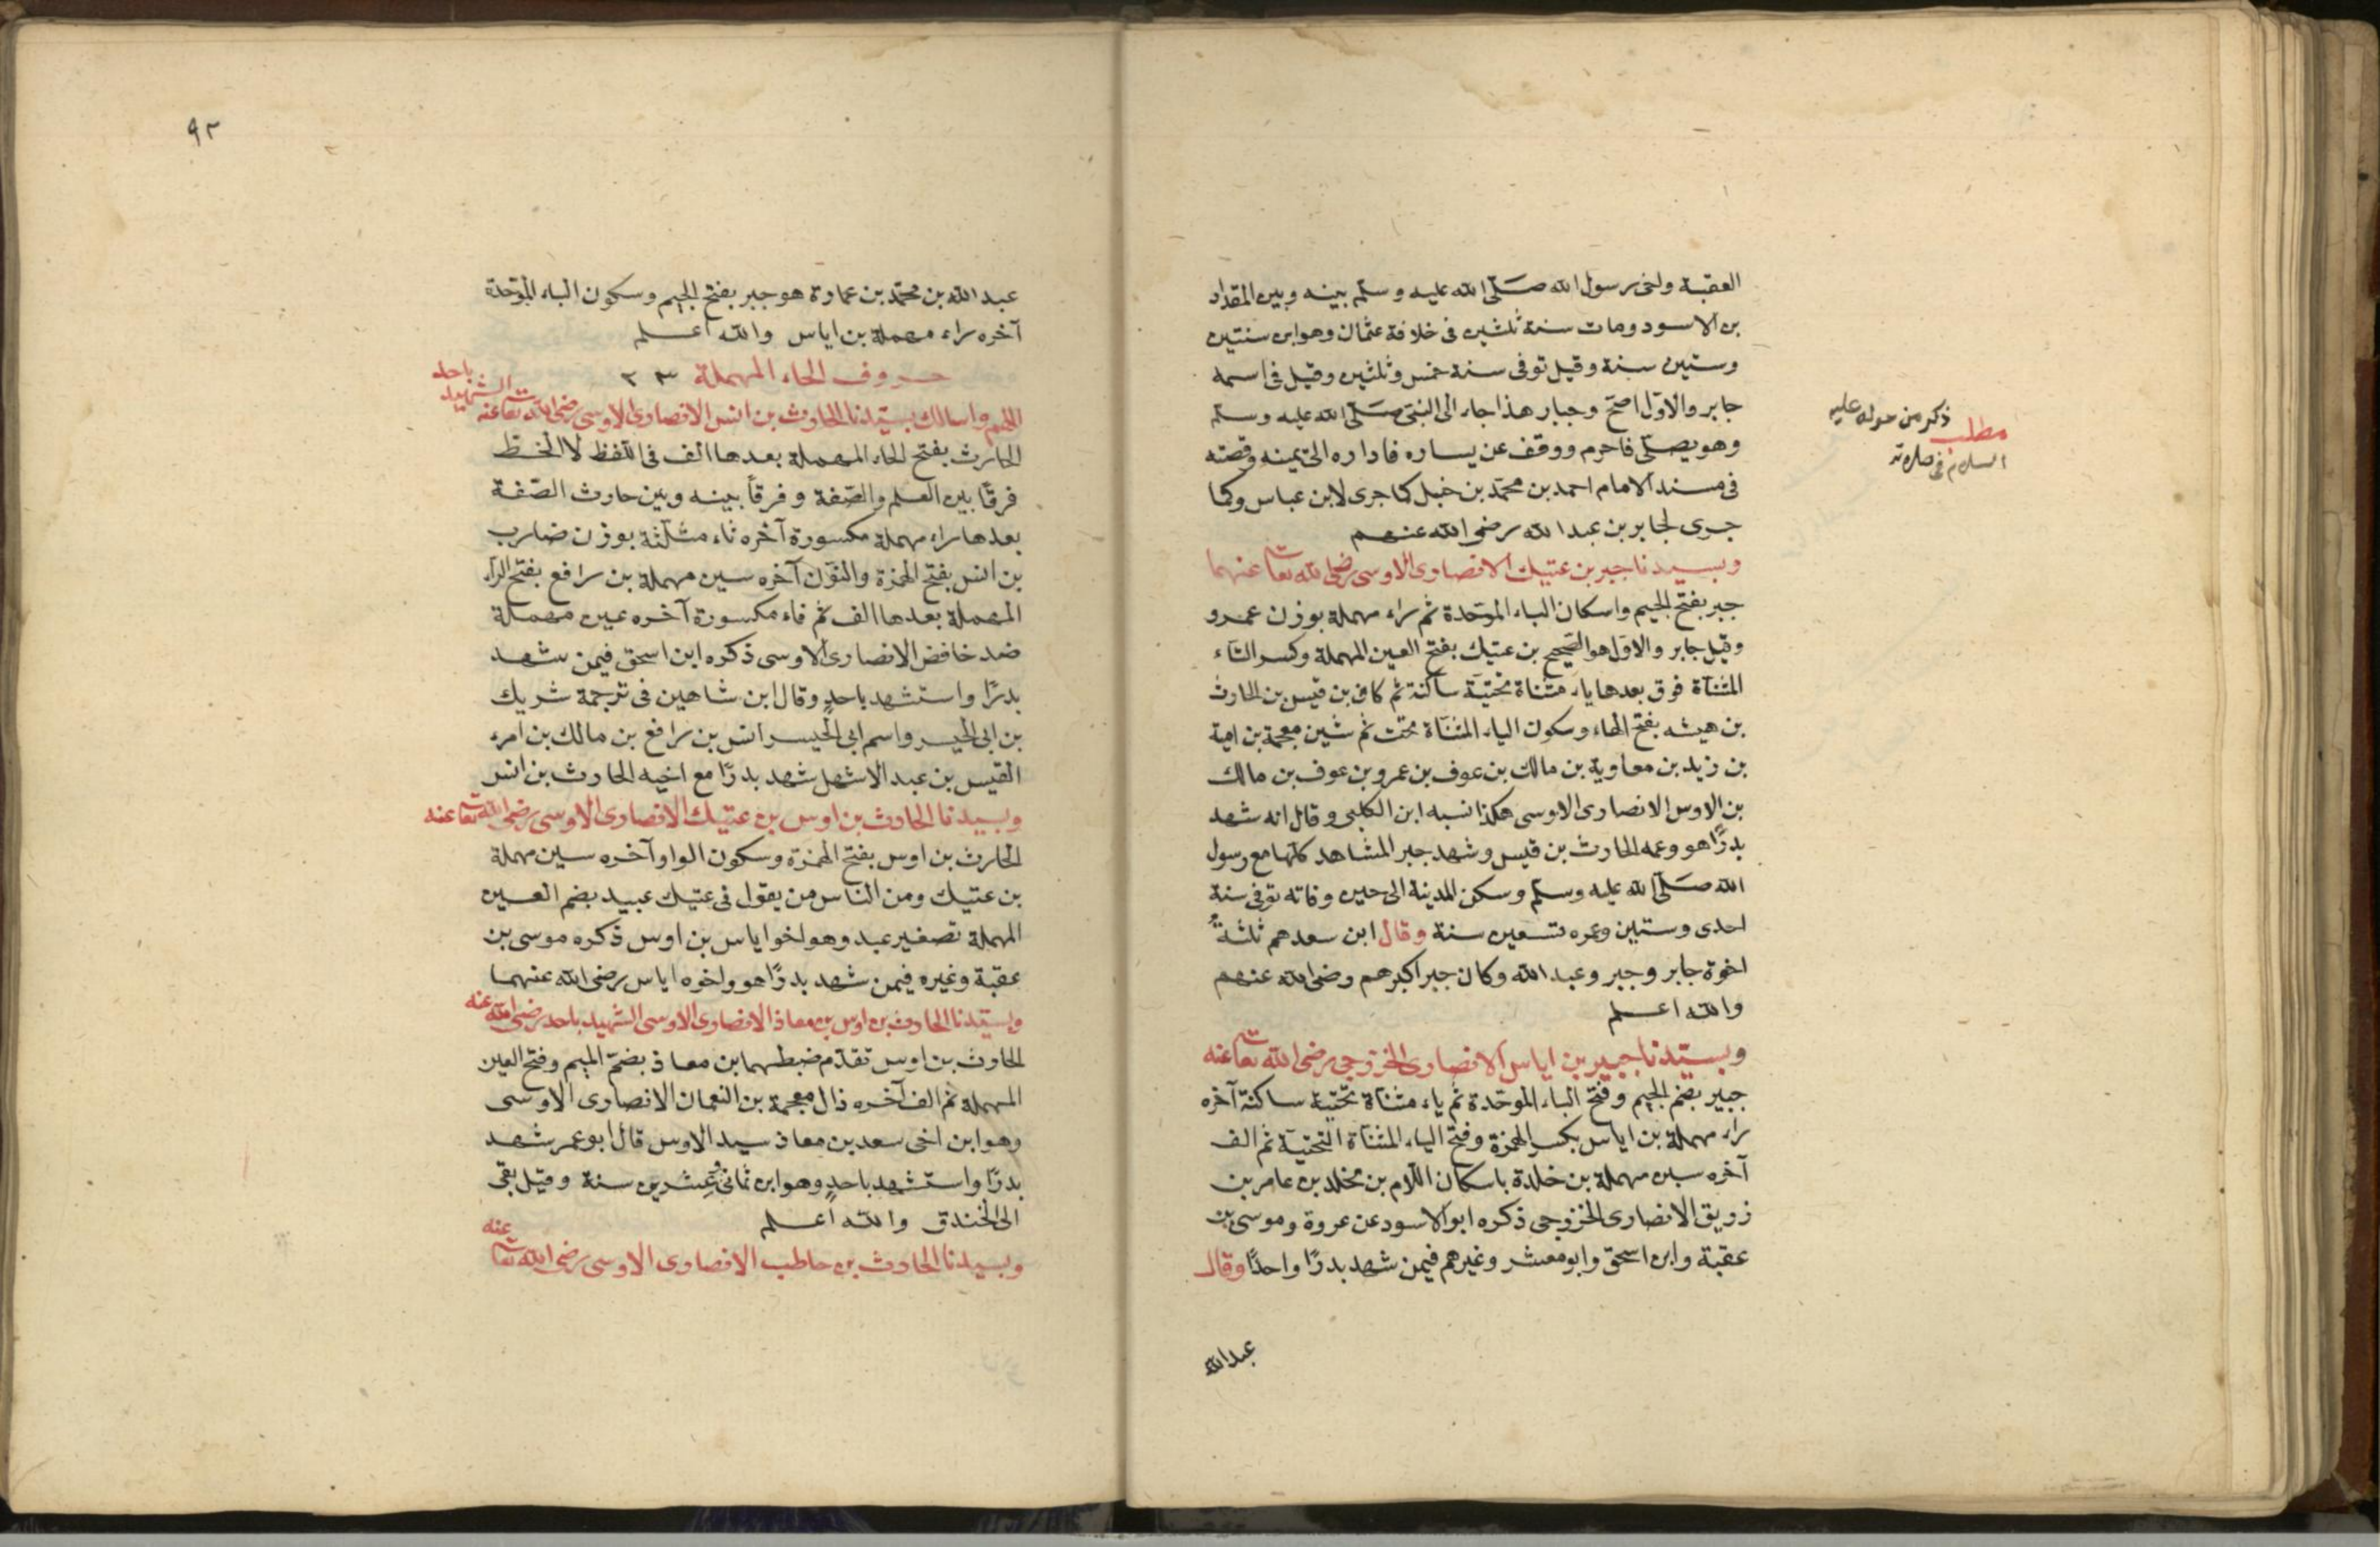 العقبة واخى رسول الله صلى الله عليه وسلم بينه وبين المقداد
بن الاسود ومات سنة ثلثين فى خلافة عثمان وهو ابن سنتين
وستين سنة وقيل توفى سنة خمس وثلثين وقيل فى اسمه
جابر والاول اصح وجبار هذا جاء الى النبى صلى الله عليه وسلم
وهو يصلى فاحرم ووقف عن يساره فاداره الى يمينه وقصته
فى مسند الامام احمد بن محمد بن حنبل كما جرى لابن عباس وكما
جرى لجابر بن عبد الله رضى الله عنهم
وبسيدنا جبر بن عتيك الانصارى الاوسى رضى الله تعا عنهما
جبر بفتح الجيم واسكان الباء الموحدة ثم راء مهملة بوزن عمرو
وقيل جابر والاول هو الصحيح بن عتيك بفتح العين المهملة وكسر التاء
المثناة فوق بعدها ياء مثناة تحتية ساكنة ثم كاف بن قيس بن الحارث
بن هيشه بفتح الهاء وسكون الياء المثناة تحت ثم شين معجمة بن امية
بن زيد بن معاوية بن مالك بن عوف بن عمرو بن عوف بن مالك
بن الاوس الانصارى الاوسى هكذا نسبه ابن الكلبى وقال انه شهد
بدرًا هو وعمه الحارث بن قيس وشهد جبر المشاهد كلها مع رسول
الله صلى الله عليه وسلم وسكن المدينة الى حين وفاته توفى سنة
احدى وستين وعمره تسعين سنة وقال ابن سعد هم ثلثةٌ
اخوة جابر وجبر وعبد الله وكان جبر اكبرهم رضى الله عنهم
والله اعلم
وبسيدنا جبير بن اياس الانصارى الخزرجى رضى الله تعا عنه
جبير بضم الجيم وفتح الباء الموحدة ثم ياء مثناة تحتية ساكنة آخره
راء مهملة بن اياس بكسر الهمزة وفتح الياء المثناة التحتية ثم الف
آخره سين مهملة بن خلدة باسكان اللام بن مخلد بن عامر بن
زريق الانصارى الخزرجى ذكره ابو الاسود عن عروة وموسى بن
عقبة وابن اسحق وابو معشر وغيرهم فيمن شهد بدرًا واحدًا وقال
عبد الله
مطلب ذكر من حوله عليه
السلام فى صلاته
٩٢
عبد الله بن محمد بن عمارة هو جبر بفتح الجيم وسكون الباء الموحدة
آخره راء مهملة بن اياس والله اعلم
حروف الحاء المهملة ٢٣
اللهم واسالك بسيدنا الحارث بن انس الانصارى الاوسى الشهيد باحد رضى الله تعا عنه
الحارث بفتح الحاء المهملة بعدها الف فى اللفظ لا الخط
فرقًا بين العلم والصفة وفرقًا بينه وبين حارث الصفة
بعدها راء مهملة مكسورة آخره ثاء مثلثة بوزن ضارب
بن انس بفتح الهمزة والنون آخره سين مهملة بن رافع بفتح الراء
المهملة بعدها الف ثم فاء مكسورة آخره عين مهملة
ضد خافض الانصارى الاوسى ذكره ابن اسحق فيمن شهد
بدرًا واستشهد باحدٍ وقال ابن شاهين فى ترجمة شريك
بن ابى الحيسر واسم ابى الحيسر انس بن رافع بن مالك بن امرء
القيس بن عبد الاشهل شهد بدرًا مع اخيه الحارث بن انس
وبسيدنا الحارث بن اوس بن عتيك الانصارى الاوسى رضى الله تعا عنه
الحارث بن اوس بفتح الهمزة وسكون الواو آخره سين مهملة
بن عتيك ومن الناس من يقول فى عتيك عبيد بضم العين
المهملة تصغير عبد وهو اخو اياس بن اوس ذكره موسى بن
عقبة وغيره فيمن شهد بدرًا هو واخوه اياس رضى الله عنهما
وبسيدنا الحارث بن اوس بن معاذ الانصارى الاوسى الشهيد باحد رضى الله عنه
الحارث بن اوس تقدم ضبطهما بن معاذ بضم الميم وفتح العين
المهملة ثم الف آخره ذال معجمة بن النعمان الانصارى الاوسى
وهو ابن اخى سعد بن معاذ سيد الاوس قال ابو عمر شهد
بدرًا واستشهد باحدٍ وهو ابن ثمانى وعشرين سنة وقيل بقى
الى الخندق والله اعلم
وبسيدنا الحارث بن حاطب الانصارى الاوسى رضى الله تعا عنه